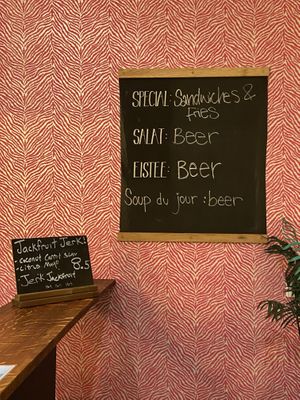 SPECIAL: Sandwiches &
fries
SALAT: Beer
EISTEE: Beer
Soup du jour: beer
Jackfruit Jerk:
- Coconut Carrot Slaw
- Citrus Mayo
8.5
Jerk Jackfruit